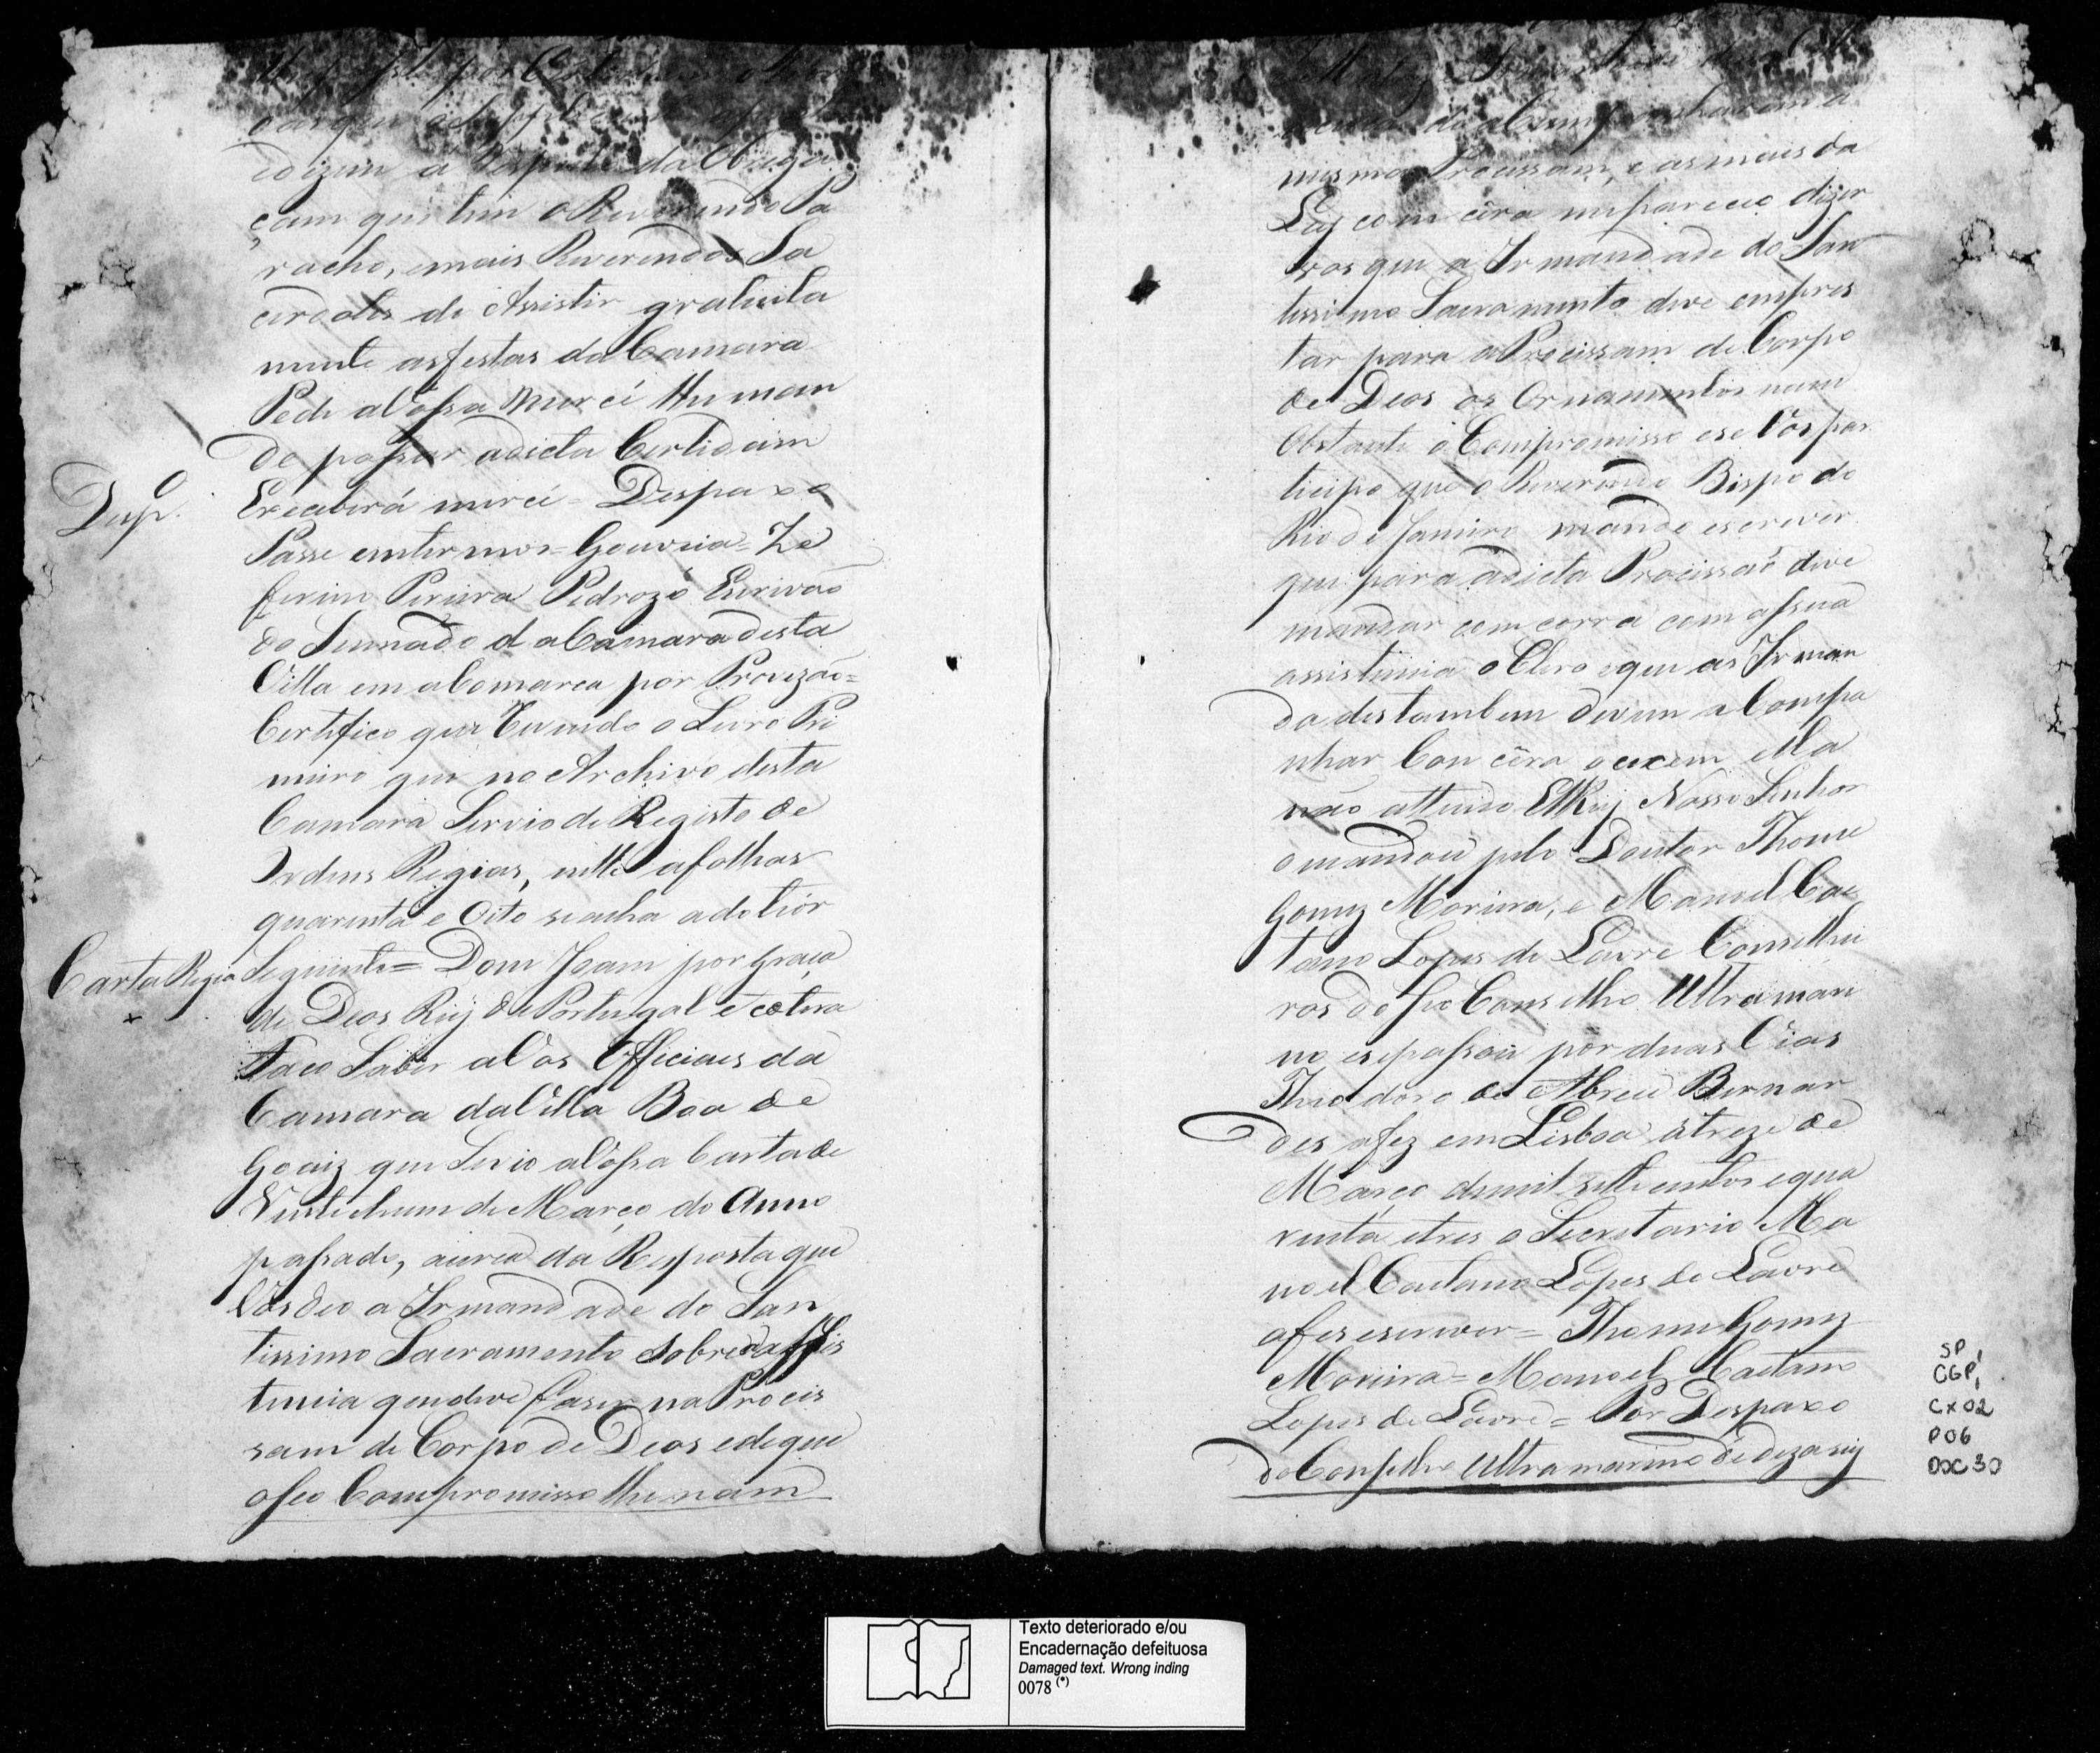 por
da Obriga
çam que tem o Reverendo Pa
racho, emais Reverendos Sa
cerdotes de Assistir gratuita
mente as festas da Camara
Pede aVossa Mercê lhe man
de passar adicta Certidaim
Ereceberá mercê = Despaxo
Desp.
Passe emtermos = Gouveia = Ze
ferino Pereira Pedrozo Escrivaõ
do Sennado da Camara desta
Villa em aComarca por Provizaõ =
Certifico que Revendo o Livro Pri
meiro que no Archivo desta
Camara Servio de Registo de
Ordens Regias, nelle afolhas
quarenta e Oito seacha adotiór
Carta Regia
Seguinte = Dom Joam por Graça
de Deos Rey de Portugal etcetera
Faco Saber aVos Officiaes da
Camara daVilla Boa de
Goaiz que Sevio aVossa Carta de
Vintiehum de Março do Anno
passado, acerca da Resposta que
Vos deo a Irmandade do San
tissimo Sacramento sobre a Assis
tencia quedeve faser na Procis
sam de Corpo de Deos edeque
oseo Compromisso lhe nam
de aCompanharem a
mesma Procissam, e as mais da
Ley com cêra mepareceo dizer
vos que a Irmandade do San
tissimo Sacramento deve empres
tar para aProcissam de Corpo
de Deos os Ornamentos nam
Obstante o Compromisso ese Vos par
ticipa que o Reverendo Bispo do
Rio de Janeiro mande escrever
que para adicta Procissaõ deve
mandar comcorra com assua
assistencia o Clero eque as Irman
dadestambem devem aCompa
nhar Con cêra
não attendo ElRey Nosso Senhor
omandou pelo Doutor Thome
Gomez Moreira, e Manoel Cae
tano Lopes de Lavre Conselhei
ros do seo Conselho Ultramari
no esepassou por duas Vias
Theodoro de Abreu Bernar
des afez em Lisboa atreze de
Março demil settecentos equa
renta etres o Secretario Ma
noel Caetano Lopes de Lavre
afes escrever = Thome Gomez
Moreira = Manoel Caetano
Lopes de Lavre = Por Despaxo
doConselho Ultramarino de dezaseis
SP,
CGP,
CX02
P06
DOC30
Texto deteriorado e/ou
Encadernação defeituosa
Damaged text. Wrong inding
0078 (*)